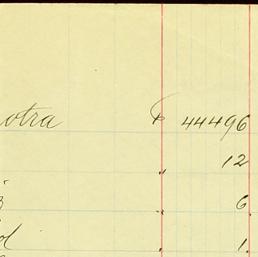 otra $ 44496
" 12
" 6
" 1